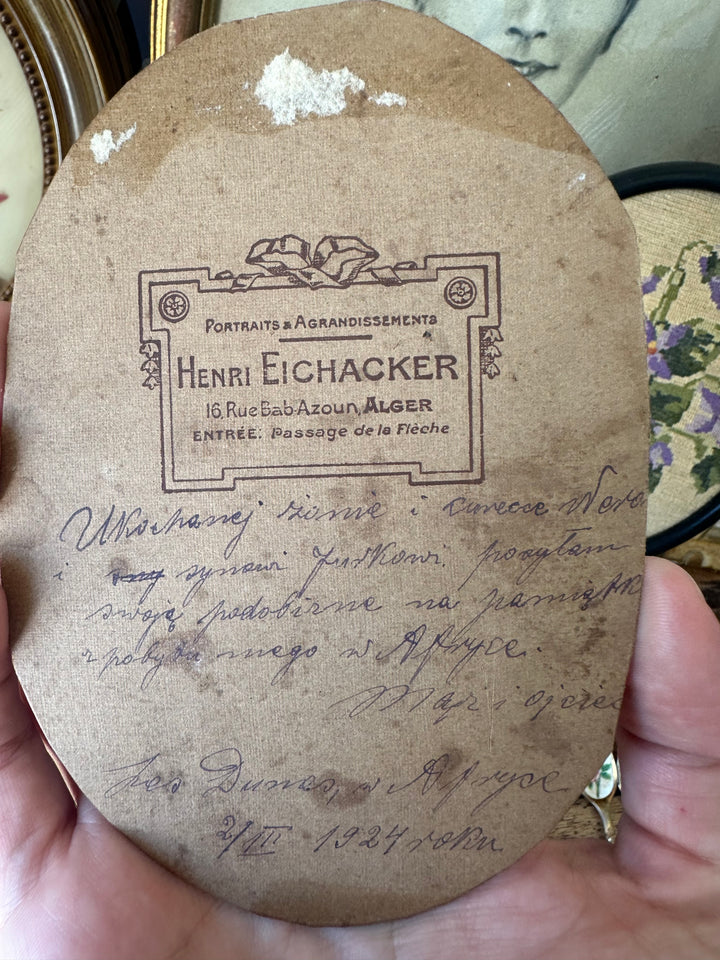 PORTRAITS & AGRANDISSEMENTS
HENRI EICHACKER
16, Rue Bab-Azoun, ALGER
ENTRÉE: Passage de la Flèche
Ukochanej żonie i curecce Wero
i synowi Jurkowi. posyłam
swoją podobiznę na pamiątk
z pobytu mego w Afryce.
Mąż i ojciec
Les Dunes, w Afryce
2/III 1924 roku